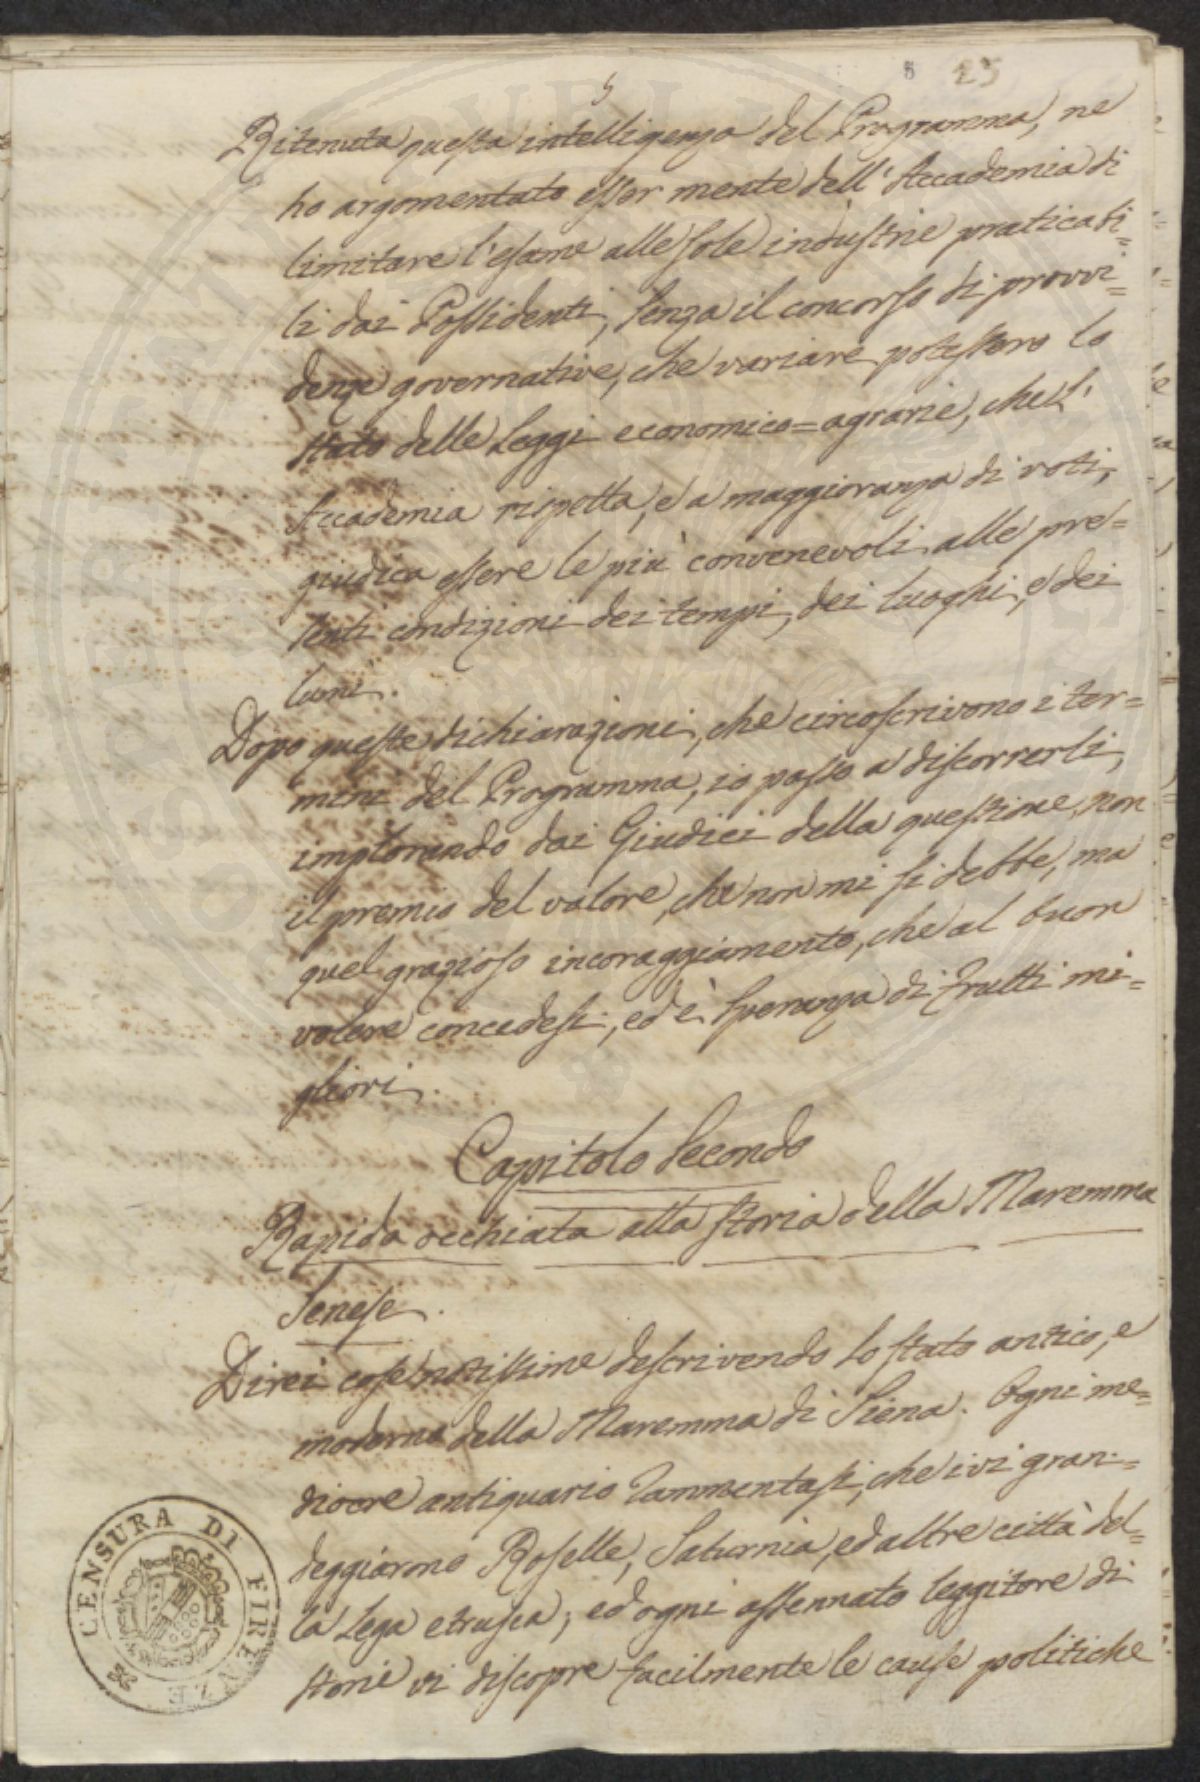 5
8 25
Ritenuta questa intelligenza del Programma, ne
ho argomentato esser mente dell'Accademia di
limitare l'esame alle sole industrie praticabi=
li dai Possidenti, senza il concorso di provvi=
denze governative, che variare potessero lo
stato delle Leggi economico=agrarie, che l'
Accademia rispetta, e a maggioranza di voti,
giudica essere le più convenevoli alle pre=
senti condizioni dei tempi, dei luoghi, e dei
lumi.
Dopo queste dichiarazioni, che circoscrivono i ter=
mini del Programma, io passo a discorrerli,
implorando dai Giudici della questione, non
il premio del valore, che non mi si debbe, ma
quel grazioso incoraggiamento, che al buon
volere concedesi, ed è speranza di frutti mi=
gliori.
Capitolo Secondo
Rapida occhiata alla storia della Maremma
Senese.
Direi cose notissime descrivendo lo stato antico, e
moderno della Maremma di Siena. Ogni me=
diocre antiquario rammentasi, che ivi gran=
deggiarono Roselle, Saturnia, ed altre città del=
la Lega etrusca; ed ogni assennato leggitore di
storie vi discopre facilmente le cause politiche
CENSURA DI FIRENZE